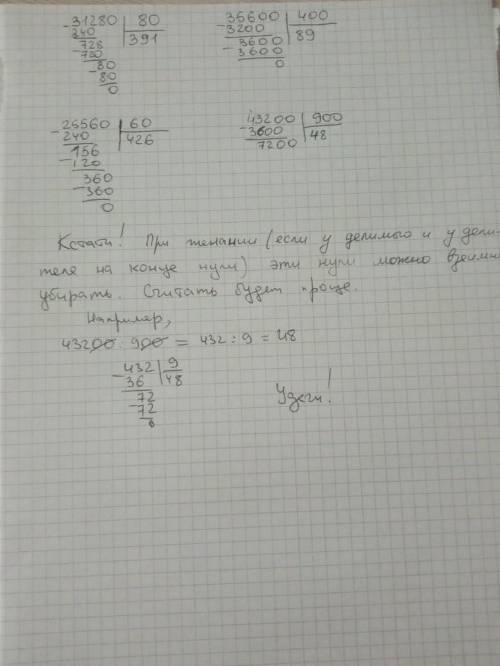 31280 | 80
240 | 391
728
720
80
80
0
35600 | 400
3200 | 89
3600
3600
0
25560 | 60
240 | 426
156
120
360
360
0
43200 | 900
3600 | 48
7200
Кстати! При желании (если у делимого и у дели-
теля на конце нули) эти нули можно взаимно
убирать. Считать будет проще.
Например,
43200 : 900 = 432 : 9 = 48
432 | 9
36 | 48
72
72
0
Удачи!